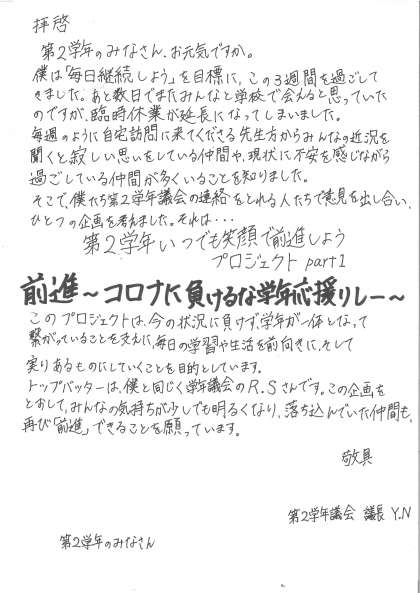 拝啓
第2学年のみなさん、お元気ですか。
僕は「毎日継続しよう」を目標に、この3週間を過ごして
きました。あと数日でまたみんなと学校で会えると思っていた
のですが、臨時休業が延長になってしまいました。
毎週のように自宅訪問に来てくださる先生方からみんなの近況を
聞くと、寂しい思いをしている仲間や、現状に不安を感じながら
過ごしている仲間が多くいることを知りました。
そこで、僕たち第2学年議会の連絡をとれる人たちで意見を出し合い、
ひとつの企画を考えました。それは・・・
第2学年いつでも笑顔で前進しよう
プロジェクト part1
前進～コロナに負けるな学年応援リレー～
このプロジェクトは、今の状況に負けず、学年が一体となって
繋がっていることを支えに、毎日の学習や生活を前向きに、そして
実りあるものにしていくことを目的としています。
トップバッターは、僕と同じく学年議会のR.Sさんです。この企画を
とおして、みんなの気持ちが少しでも明るくなり、落ち込んでいた仲間も、
再び「前進」できることを願っています。
敬具
第2学年議会 議長 Y.N
第2学年のみなさん